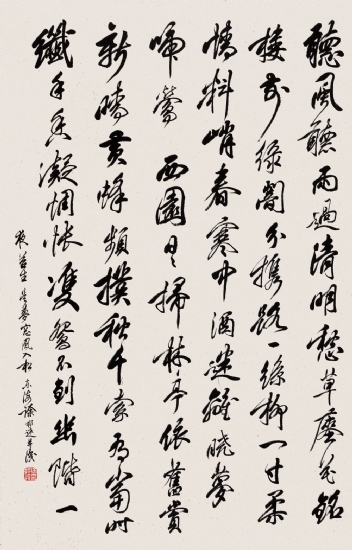 聽風聽雨過清明愁草瘞花銘
樓前綠闇分攜路一絲柳一寸柔
情料峭春寒中酒迷離曉夢
啼鶯 西園日日掃林亭依舊賞
新晴黃蜂頻撲秋千索有當時
纖手香凝惆悵雙鴛不到幽階一
夜苔生 吳夢窗風入松